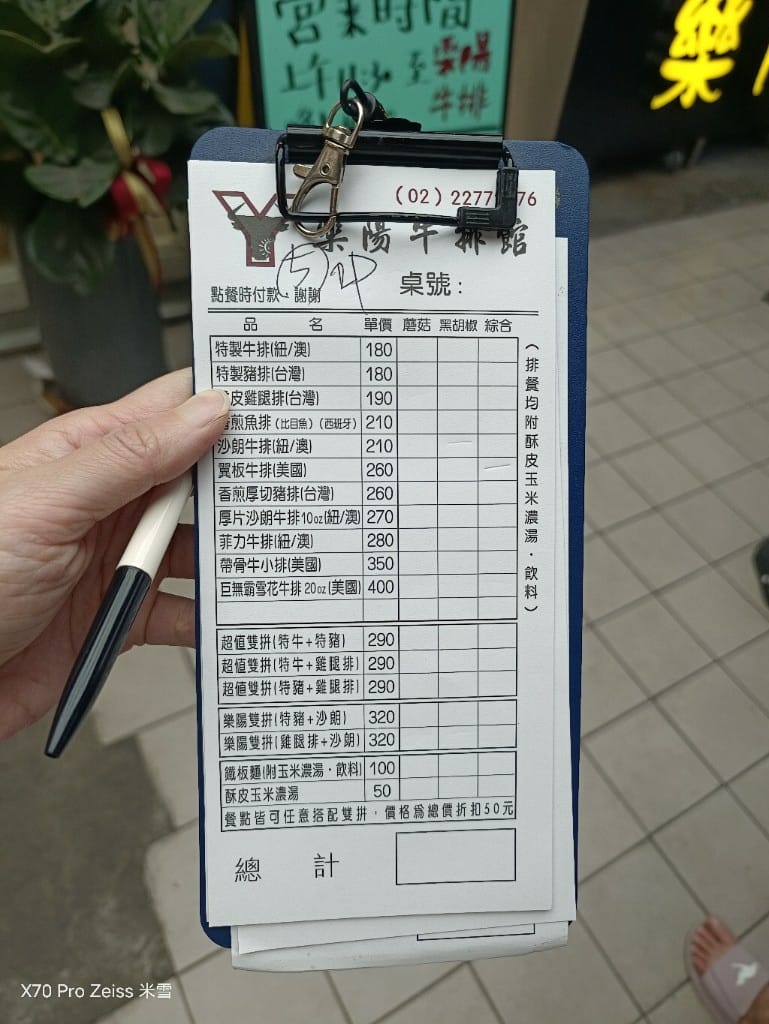 營業時間
上午11 至
樂陽
牛排
樂
(02) 2277 76
樂陽牛排館
內2P
點餐時付款，謝謝
桌號：
品名 單價 蘑菇 黑胡椒 綜合
特製牛排(紐/澳) 180
特製豬排(台灣) 180
皮雞腿排(台灣) 190
香煎魚排(比目魚)(西班牙) 210
沙朗牛排(紐/澳) 210
翼板牛排(美國) 260
香煎厚切豬排(台灣) 260
厚片沙朗牛排10oz(紐/澳) 270
菲力牛排(紐/澳) 280
帶骨牛小排(美國) 350
巨無霸雪花牛排20oz(美國) 400
(排餐均附酥皮玉米濃湯·飲料)
超值雙拼(特牛+特豬) 290
超值雙拼(特牛+雞腿排) 290
超值雙拼(特豬+雞腿排) 290
樂陽雙拼(特豬+沙朗) 320
樂陽雙拼(雞腿排+沙朗) 320
鐵板麵(附玉米濃湯·飲料) 100
酥皮玉米濃湯 50
餐點皆可任意搭配雙拼，價格為總價折扣50元
總計
X70 Pro Zeiss 米雪